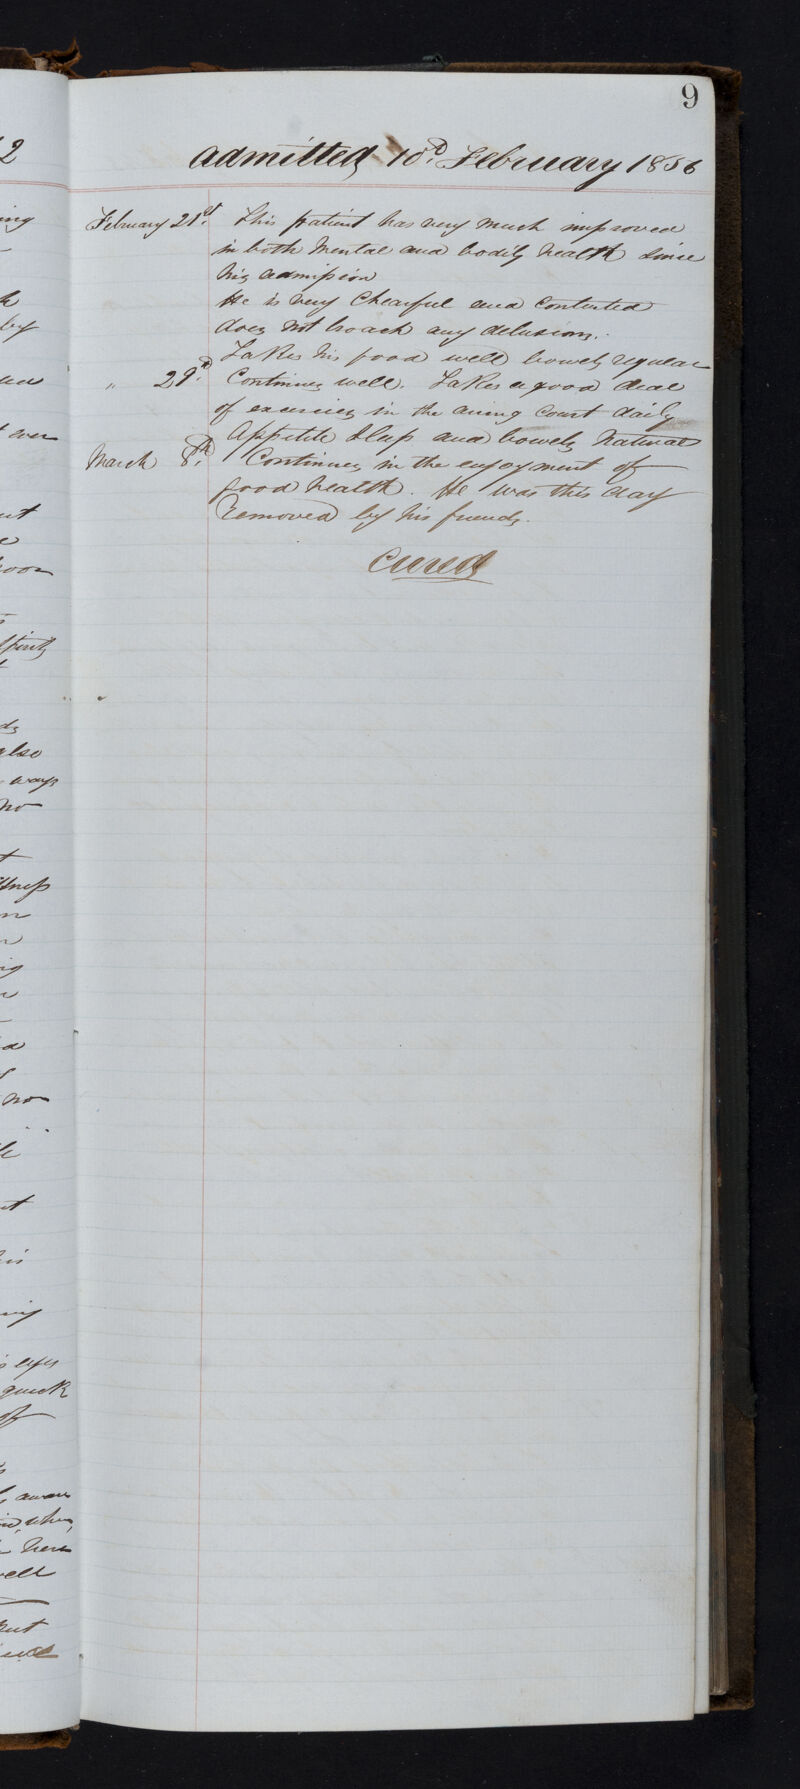 9
admitted 10d. February 1856
February 21st. This patient has very much improved
in both Mental and bodily health since
his admission
He is very Chearful and Contented
does not broach any delusions.
Takes his food well bowels regular
" 29d. Continues well. Takes a good deal
of exercies in the airing Court daily
Appetite Sleep and bowels Natural
March 8th. Continues in the enjoyment of
good health. He was this day
removed by his friends.
Cured
2
ing
by
over
spirits
also
ways
no
no
his
eyes
quick
of
aware
when,
here
well
but